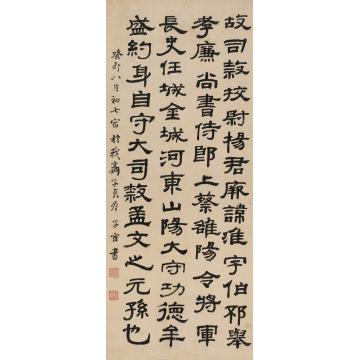 故司隸挍尉楊君厥諱淮字伯邳舉
孝廉尚書侍郎上蔡雒陽令將軍
長史任城金城河東山陽大守功德牟
盛約身自守大司隸孟文之元孫也
癸卯八月初七 於我齋子 書